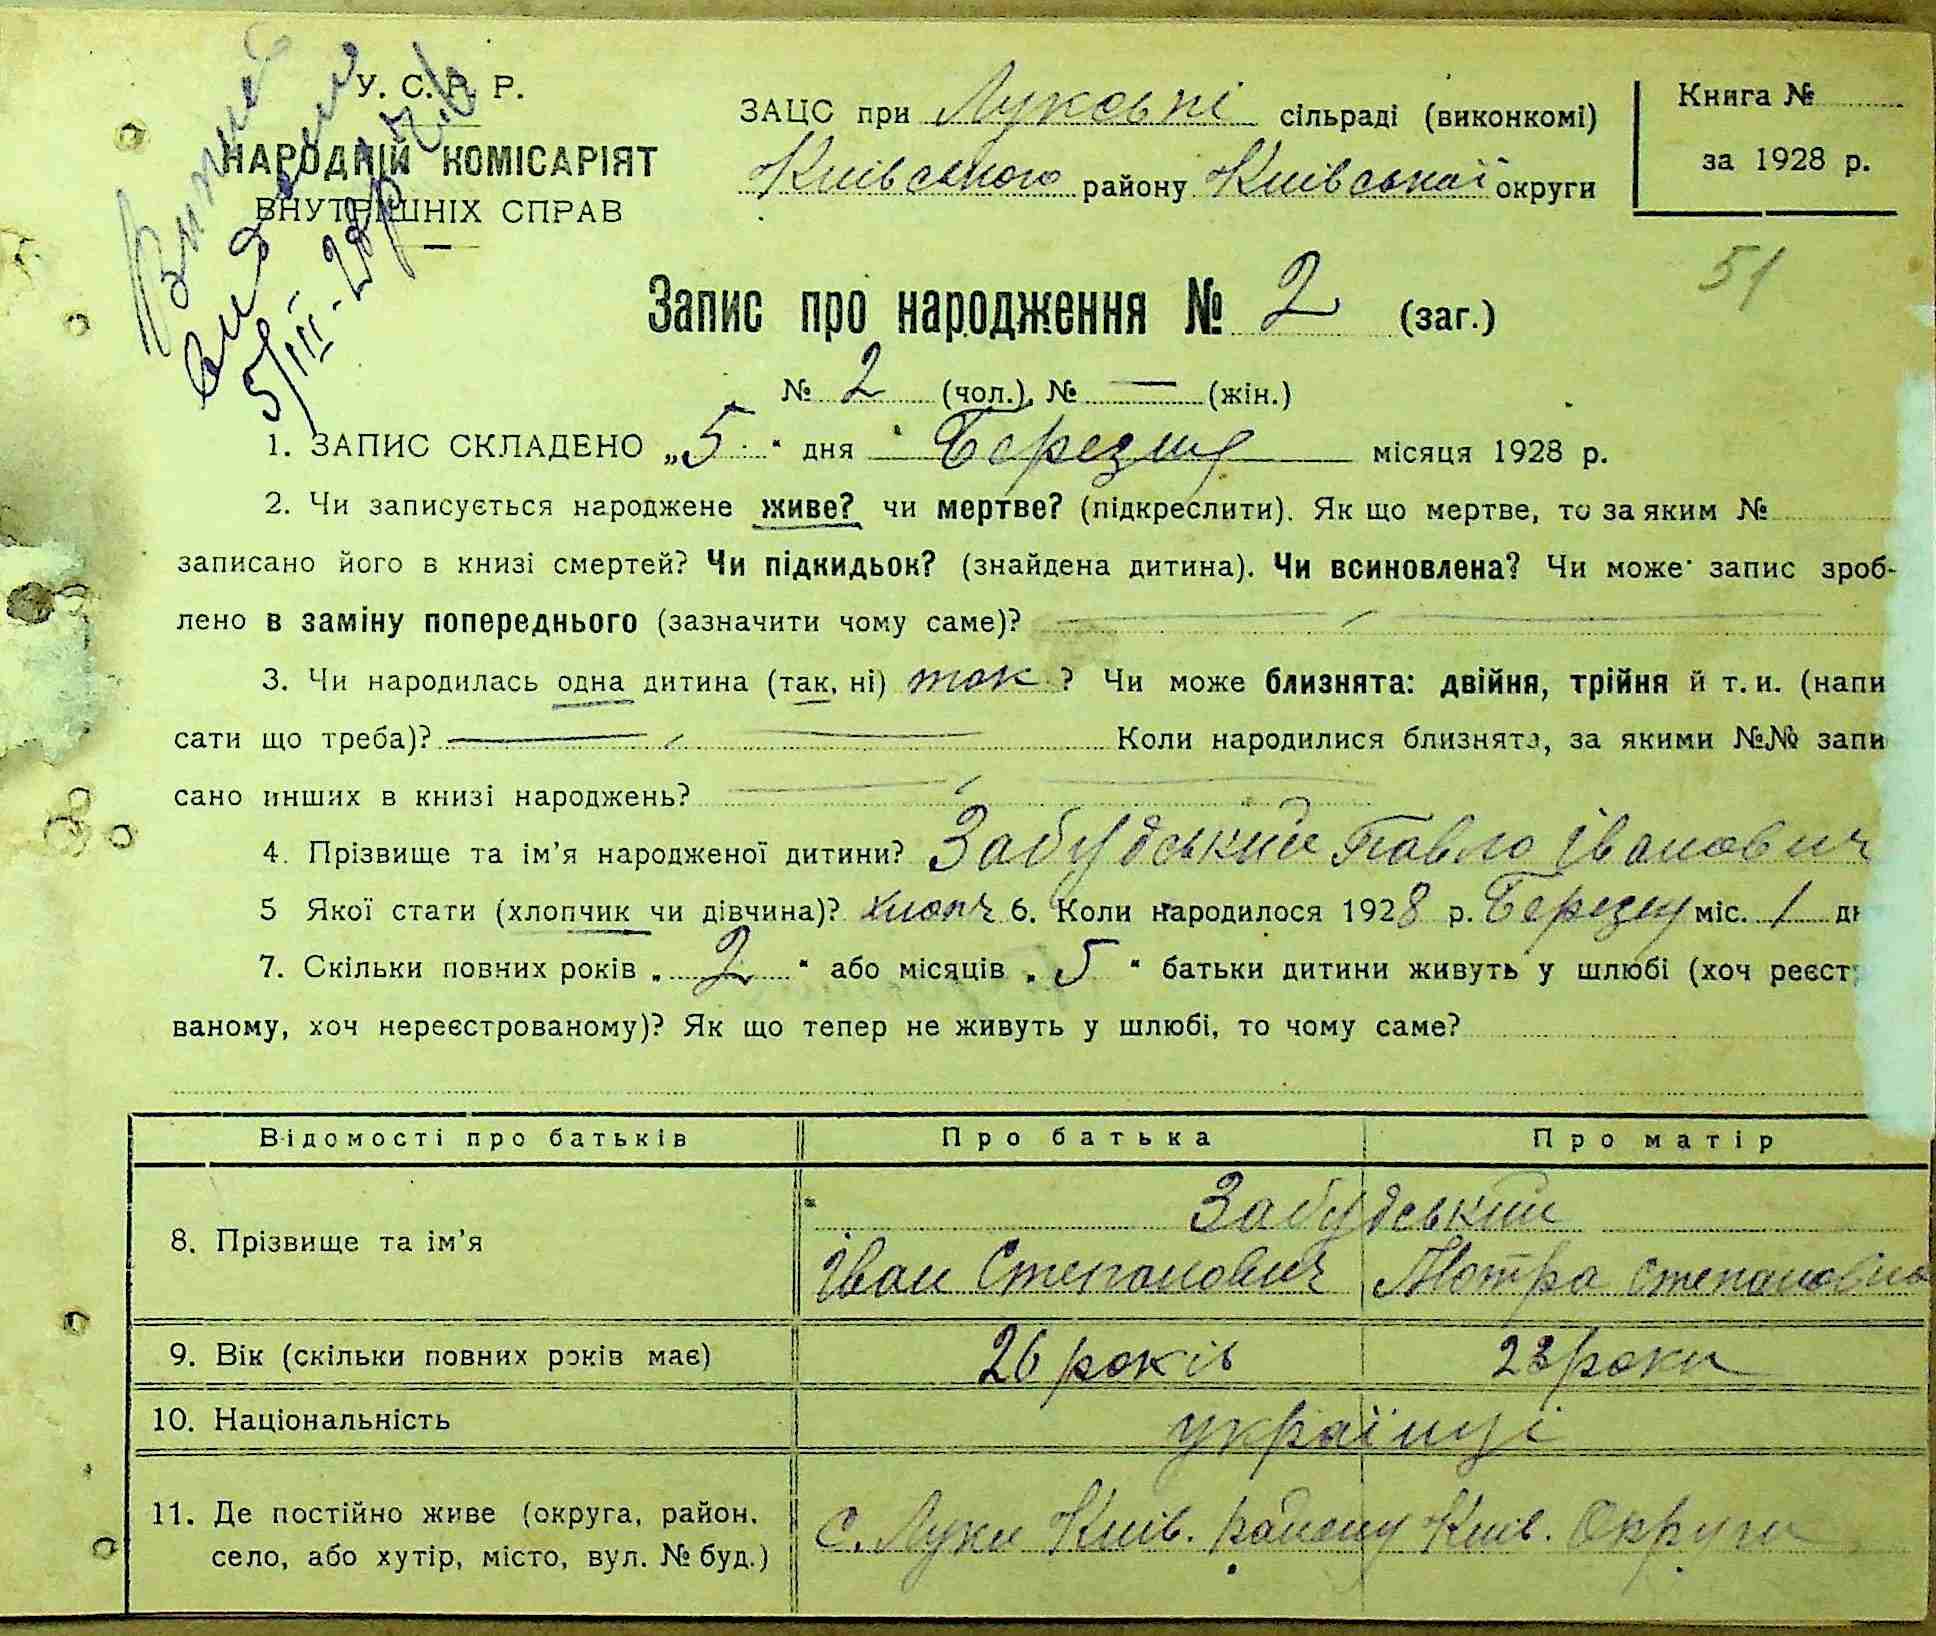 У. С. Р. Р.
НАРОДНІЙ КОМІСАРІЯТ
ВНУТРІШНІХ СПРАВ
Витяг
видано
5/III-28р
ЗАЦС при Луковкі сільраді (виконкомі)
Київського району Київської округи
Книга №
за 1928 р.
51
Запис про народження № 2 (заг.)
№ 2 (чол.), № — (жін.)
1. ЗАПИС СКЛАДЕНО „5" дня Березня місяця 1928 р.
2. Чи записується народжене живе? чи мертве? (підкреслити). Як що мертве, то за яким №
записано його в книзі смертей? Чи підкидьок? (знайдена дитина). Чи всиновлена? Чи може запис зроб-
лено в заміну попереднього (зазначити чому саме)?
3. Чи народилась одна дитина (так, ні) так ? Чи може близнята: двійня, трійня й т. и. (напи
сати що треба)? Коли народилися близнята, за якими №№ запи
сано инших в книзі народжень?
4. Прізвище та ім'я народженої дитини? Забудський Павло Іванович
5 Якої стати (хлопчик чи дівчина)? хлопч 6. Коли народилося 1928 р. Березня міс. 1 дн
7. Скільки повних років „2" або місяців „5" батьки дитини живуть у шлюбі (хоч реєстр
ваному, хоч нереєстрованому)? Як що тепер не живуть у шлюбі, то чому саме?
Відомості про батьків Про батька Про матір
8. Прізвище та ім'я Забудський
Іван Степанович Мотра Степановна
9. Вік (скільки повних років має) 26 років 23 роки
10. Національність українці
11. Де постійно живе (округа, район, село, або хутір, місто, вул. № буд.) с. Луки Київ. району Київ. Округи